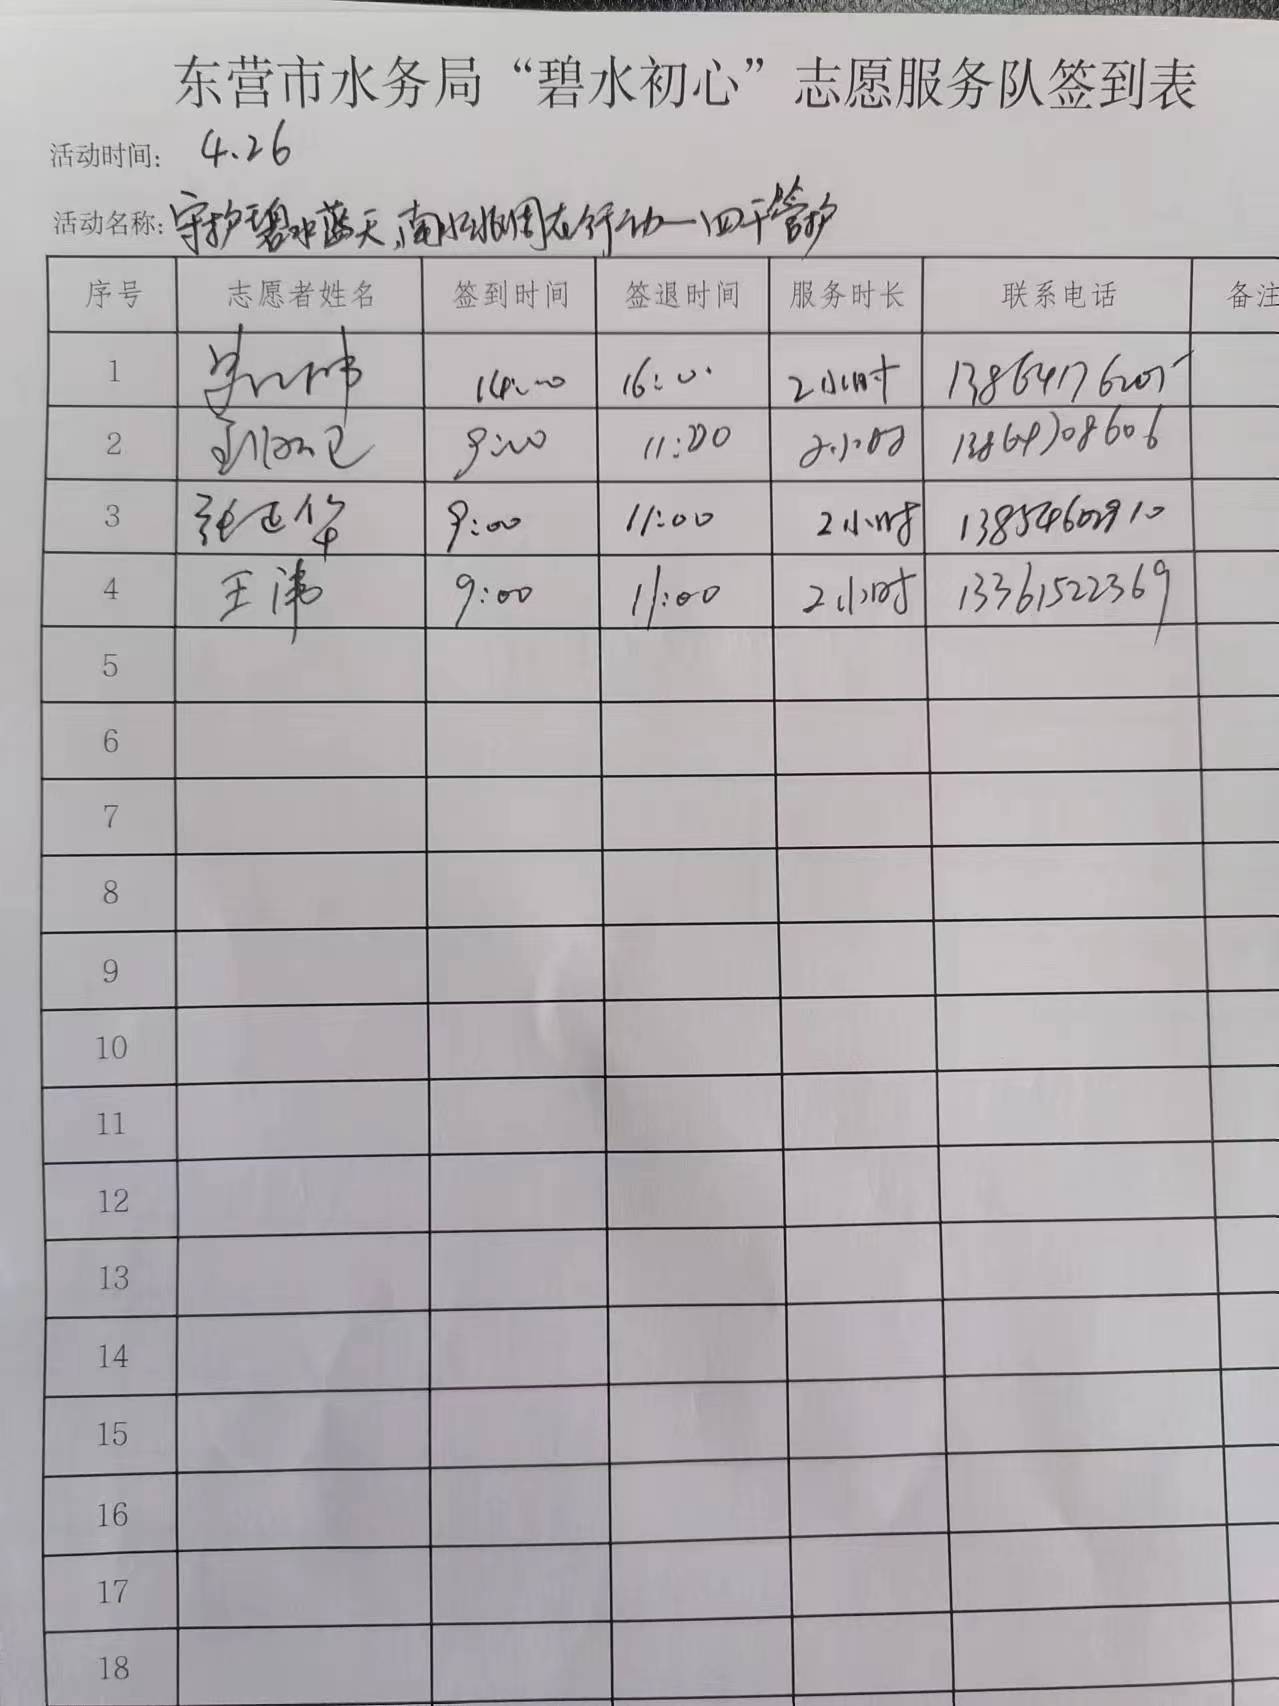 东营市水务局“碧水初心”志愿服务队签到表
活动时间: 4.26
活动名称: 守护碧水蓝天,南水北调在行动一四干管护
序号 志愿者姓名 签到时间 签退时间 服务时长 联系电话 备注
1 14:00 16:00 2小时
2 9:00 11:00 2小时 13864708606
3 张正华 9:00 11:00 2小时
4 王沛 9:00 11:00 2小时 13361522369
5
6
7
8
9
10
11
12
13
14
15
16
17
18